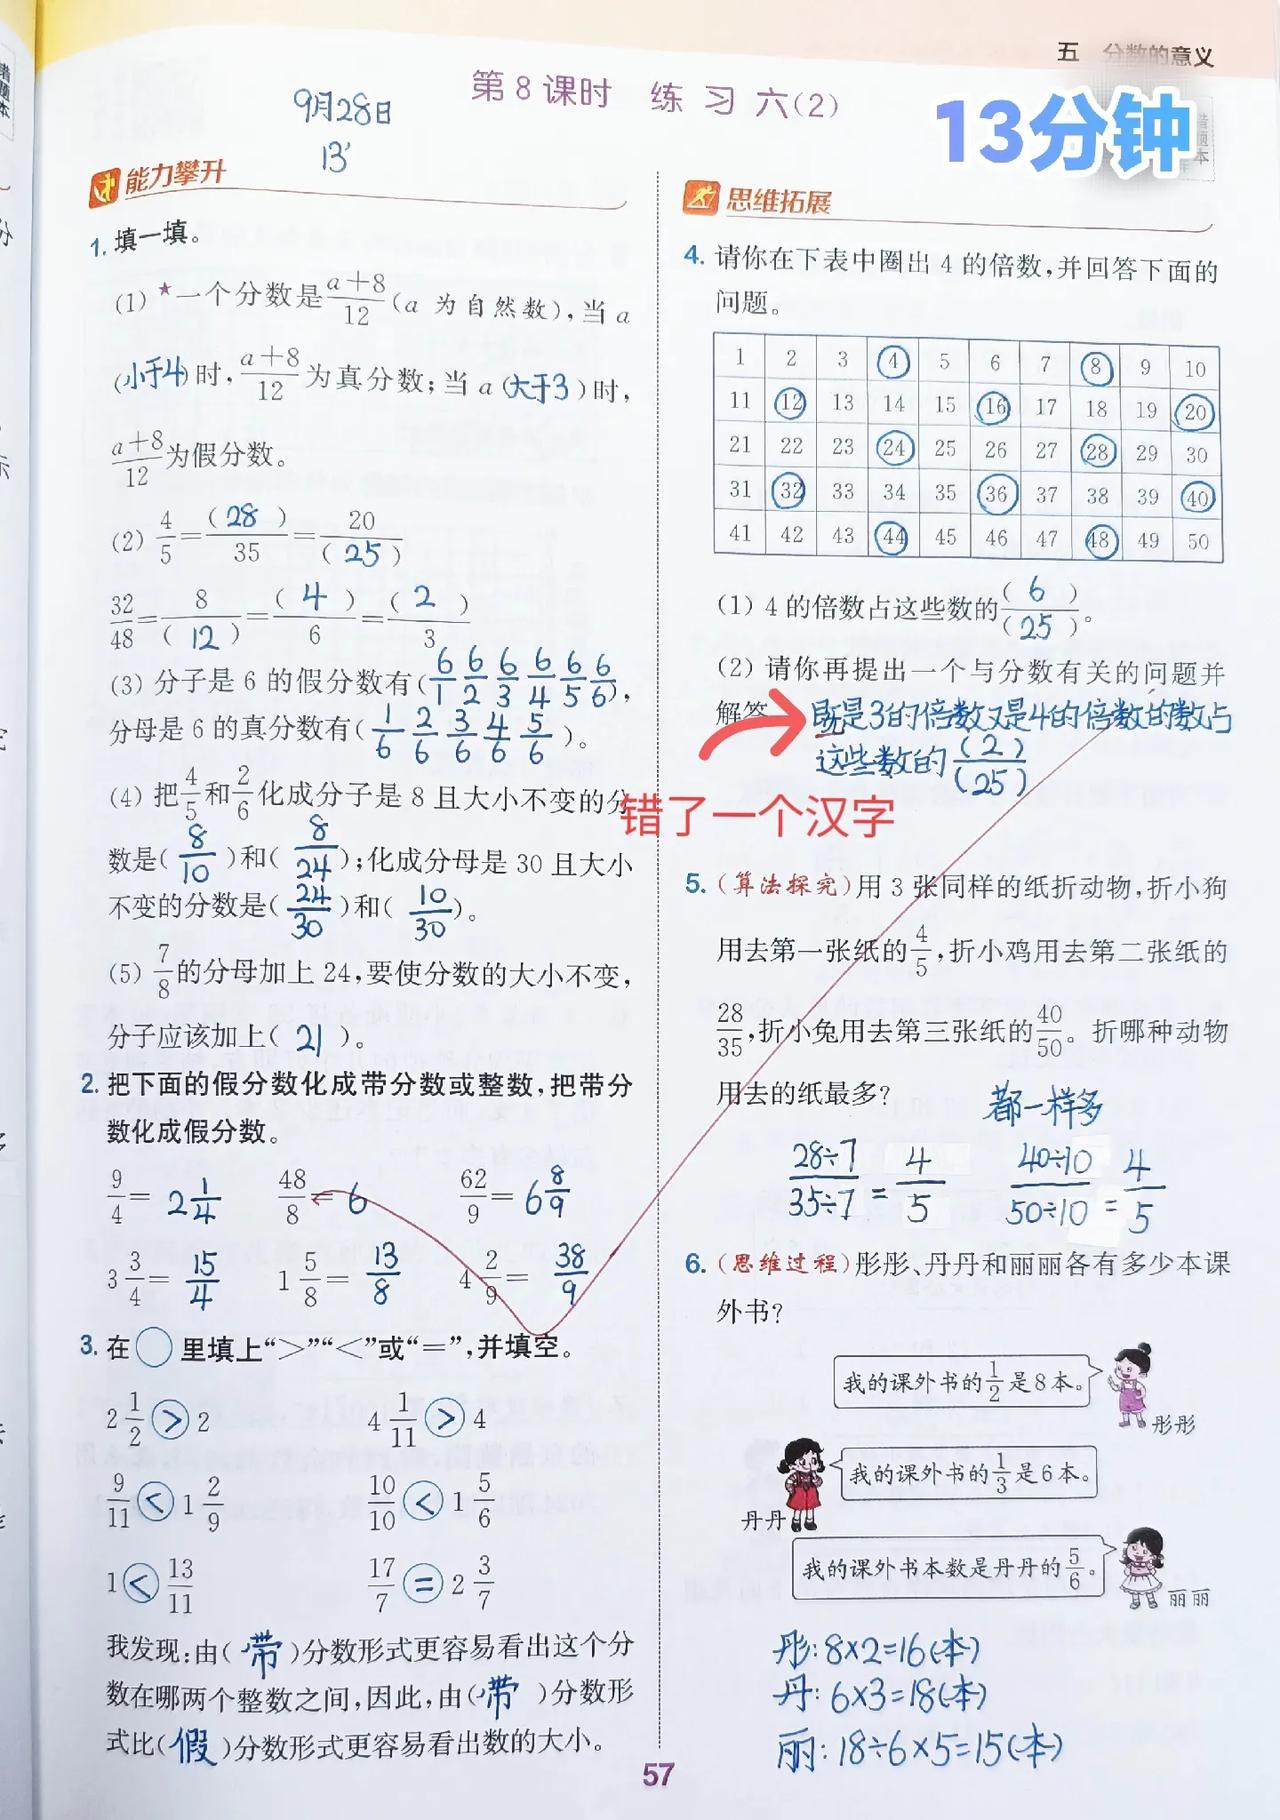 五 分数的意义
第 8 课时 练 习 六(2)
13分钟
9月28日
13′
能力攀升
1. 填一填。
(1) ★一个分数是 (a+8)/12 (a 为自然数),当 a
(小于4)时, (a+8)/12 为真分数;当 a(大于3)时,
(a+8)/12 为假分数。
(2) 4/5=(28)/35=20/(25)
32/48=8/(12)=(4)/6=(2)/3
(3) 分子是 6 的假分数有(6/1 6/2 6/3 6/4 6/5 6/6),
分母是 6 的真分数有(1/6 2/6 3/6 4/6 5/6)。
(4) 把 4/5 和 2/6 化成分子是 8 且大小不变的分
数是(8/10)和(8/24);化成分母是 30 且大小
不变的分数是(24/30)和(10/30)。
(5) 7/8 的分母加上 24,要使分数的大小不变,
分子应该加上(21)。
2. 把下面的假分数化成带分数或整数,把带分
数化成假分数。
9/4= 2 1/4 48/8= 6 62/9= 6 8/9
3 3/4= 15/4 1 5/8= 13/8 4 2/9= 38/9
3. 在○里填上“>”“<”或“=”,并填空。
2 1/2 > 2 4 1/11 > 4
9/11 < 1 2/9 10/10 < 1 5/6
1 < 13/11 17/7 = 2 3/7
我发现:由(带)分数形式更容易看出这个分
数在哪两个整数之间,因此,由(带)分数形
式比(假)分数形式更容易看出数的大小。
思维拓展
4. 请你在下表中圈出 4 的倍数,并回答下面的
问题。
1 2 3 4 5 6 7 8 9 10
11 12 13 14 15 16 17 18 19 20
21 22 23 24 25 26 27 28 29 30
31 32 33 34 35 36 37 38 39 40
41 42 43 44 45 46 47 48 49 50
(1) 4 的倍数占这些数的(6)/(25)。
(2) 请你再提出一个与分数有关的问题并
解答
既是3的倍数又是4的倍数的数占
这些数的(2)/(25)
错了一个汉字
5. (算法探究)用 3 张同样的纸折动物,折小狗
用去第一张纸的 4/5,折小鸡用去第二张纸的
28/35,折小兔用去第三张纸的 40/50。折哪种动物
用去的纸最多?
都一样多
28÷7/35÷7=4/5 40÷10/50÷10=4/5
6. (思维过程)彤彤、丹丹和丽丽各有多少本课
外书?
我的课外书的 1/2 是8本。
彤彤
我的课外书的 1/3 是6本。
丹丹
我的课外书本数是丹丹的 5/6。
丽丽
彤: 8×2=16(本)
丹: 6×3=18(本)
丽: 18÷6×5=15(本)
57